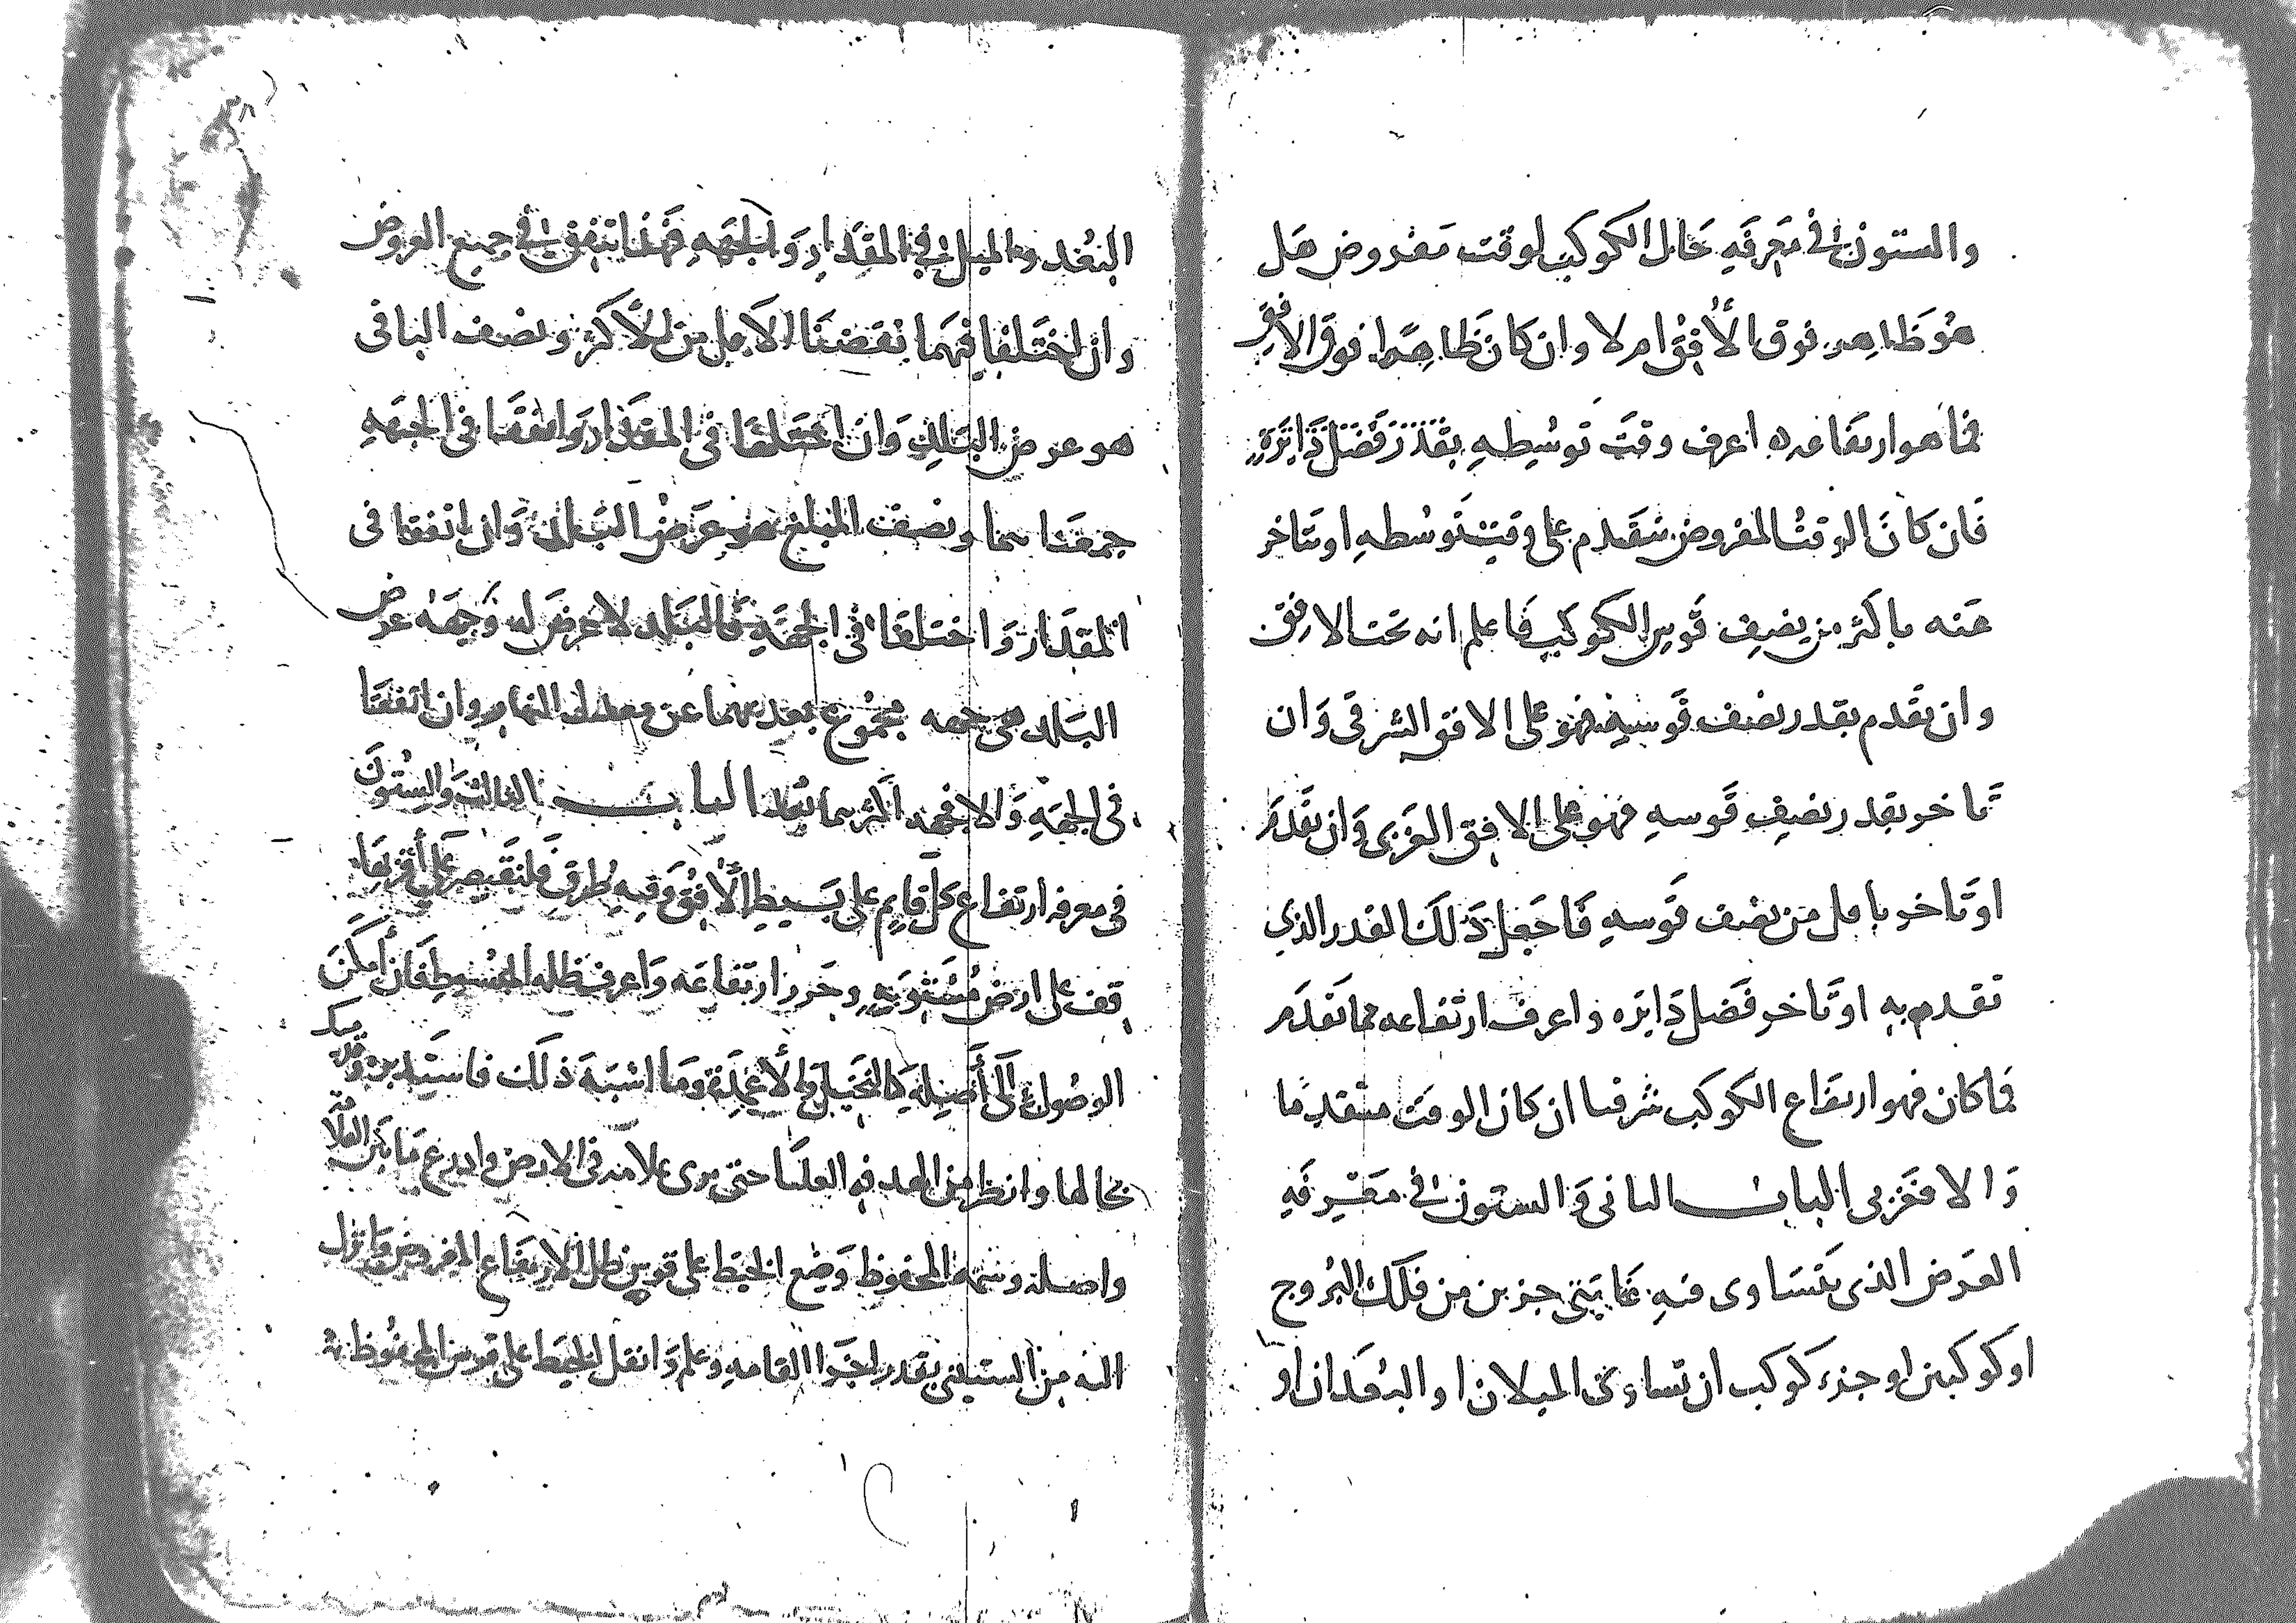 والستون في معرفه حال الكوكب لوقت مفروض هل
هو ظاهر فوق الأفق ام لا وان كان ظاهرا فوق الافق
فما هو ارتفاعه اعرف وقت توسطه بقدر فضل دايره
فان كان الوقت المفروض متقدم على وقت توسطه او متاخر
عنه باكثر من نصف قوس الكوكب فاعلم انه تحت الافق
وان تقدم بقدر نصف قوسه فهو على الافق الشرقى وان
تاخر بقدر نصف قوسه فهو على الافق الغربى وان تقدم
او تاخر باقل من نصف قوسه فاجعل ذلك القدر الذي
تقدم به او تاخر فضل دايره واعرف ارتفاعه مما تقدم
فما كان فهو ارتفاع الكوكب شرقيا ان كان الوقت متقدما
والا فغربى الباب الثانى والستون في معرفه
العرض الذى يتساوى فيه غايتى جزين من فلك البروج
او كوكبين او جزء كوكب ان تساوى الميلان او البعدان او
البعد والميل في المقدار والجهه فهما يتفقا في جميع العروض
وان اختلفا فيهما نقصنا الاقل من الأكثر ونصف الباقى
هو عرض البلد وان اختلفا فى المقدار واتفقا فى الجهه
جمعنا هما ونصف المبلغ هو عرض البلد وان اتفقا فى
المقدار واختلفا فى الجهه فالبلد لا عرض له وجهه عرض
البلد هى جهه مجموع بعديهما عن معدل النهار وان اتفقا
فى الجهه والا فجهه اكثرهما بعدا الباب الثالث والستون
فى معرفه ارتفاع كل قايم على بسيط الأفق وفيه طرق فلنقتصر على أقربها
قف على ارض مستويه وحرر ارتفاعه واعرف ظله المبسوط فان أمكن
الوصول إلى أصله كالنخيل والأعمدة وما اشبه ذلك فاستدبره وقد مسك
بحالها وانظر من الهدفه العليا حتى ترى علامه فى الارض وادرع ما بين العلامه
واصله وسمه المحفوظ وضع الخيط على قوس ظل الارتفاع المفروض وانزل
اليه من الستينى بقدر اجزا القامه وعلم وانقل الخيط على قوس المحفوظ